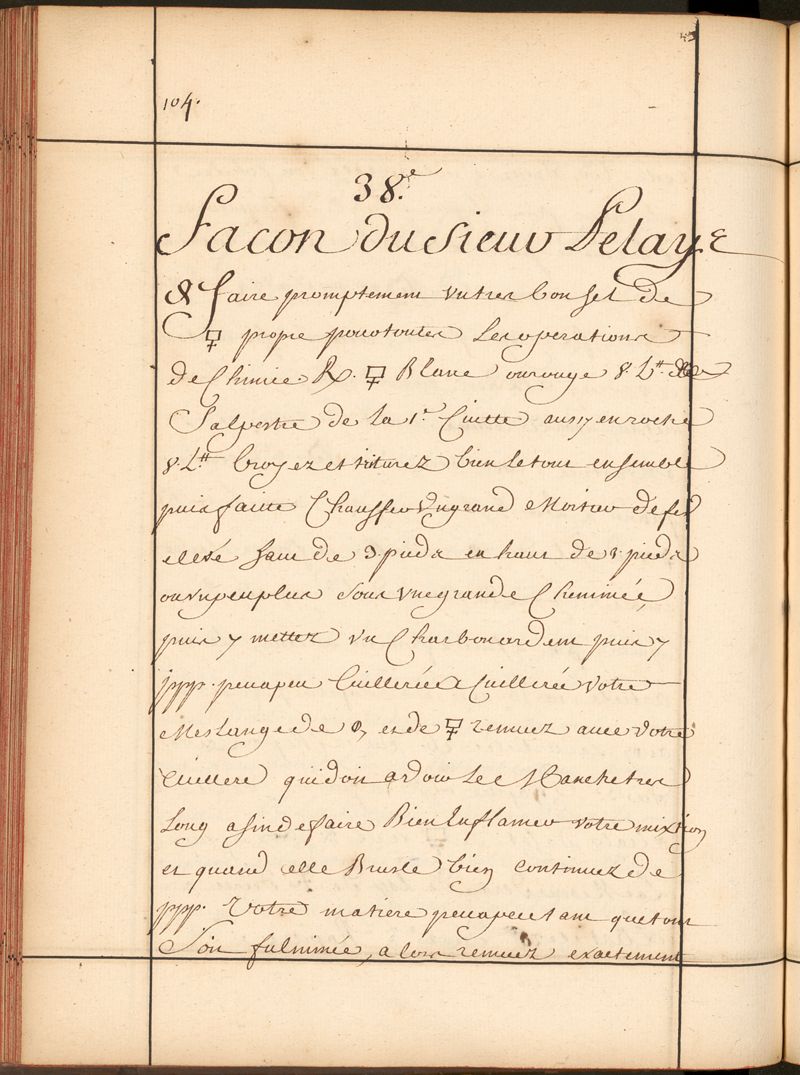 104.
38.e
Facon du Sieur Delaye
& faire promptement un tres bon sel de
🜿 propre pour toutes Les operations
de Chimie Rx. 🜿 Blanc ou rouge 8. L.tt de
Salpestre de La 1.e Cuitte aussy en roche
8. L.tt broyez et triturez bien le tout ensemble
puis faitte Chauffer un grand Mortier de fer
elevé haut de 3. pieds en haut de 3. pieds
ou un peu plus sous une grande Cheminée,
puis y mettez un Charbon ardent puis y
ppp. peu a peu Cuillerée a Cuillerée votre
Meslange de et de 🜿 remuez avec votre
Cuillere qui doit avoir Le Manche tres
Long afin de faire Bien Enflamer votre mixtion
et quand elle Brusle bien continuez de
ppp. Votre matiere peu a peu tant que tout
soit fulminée, alors remuez exactement